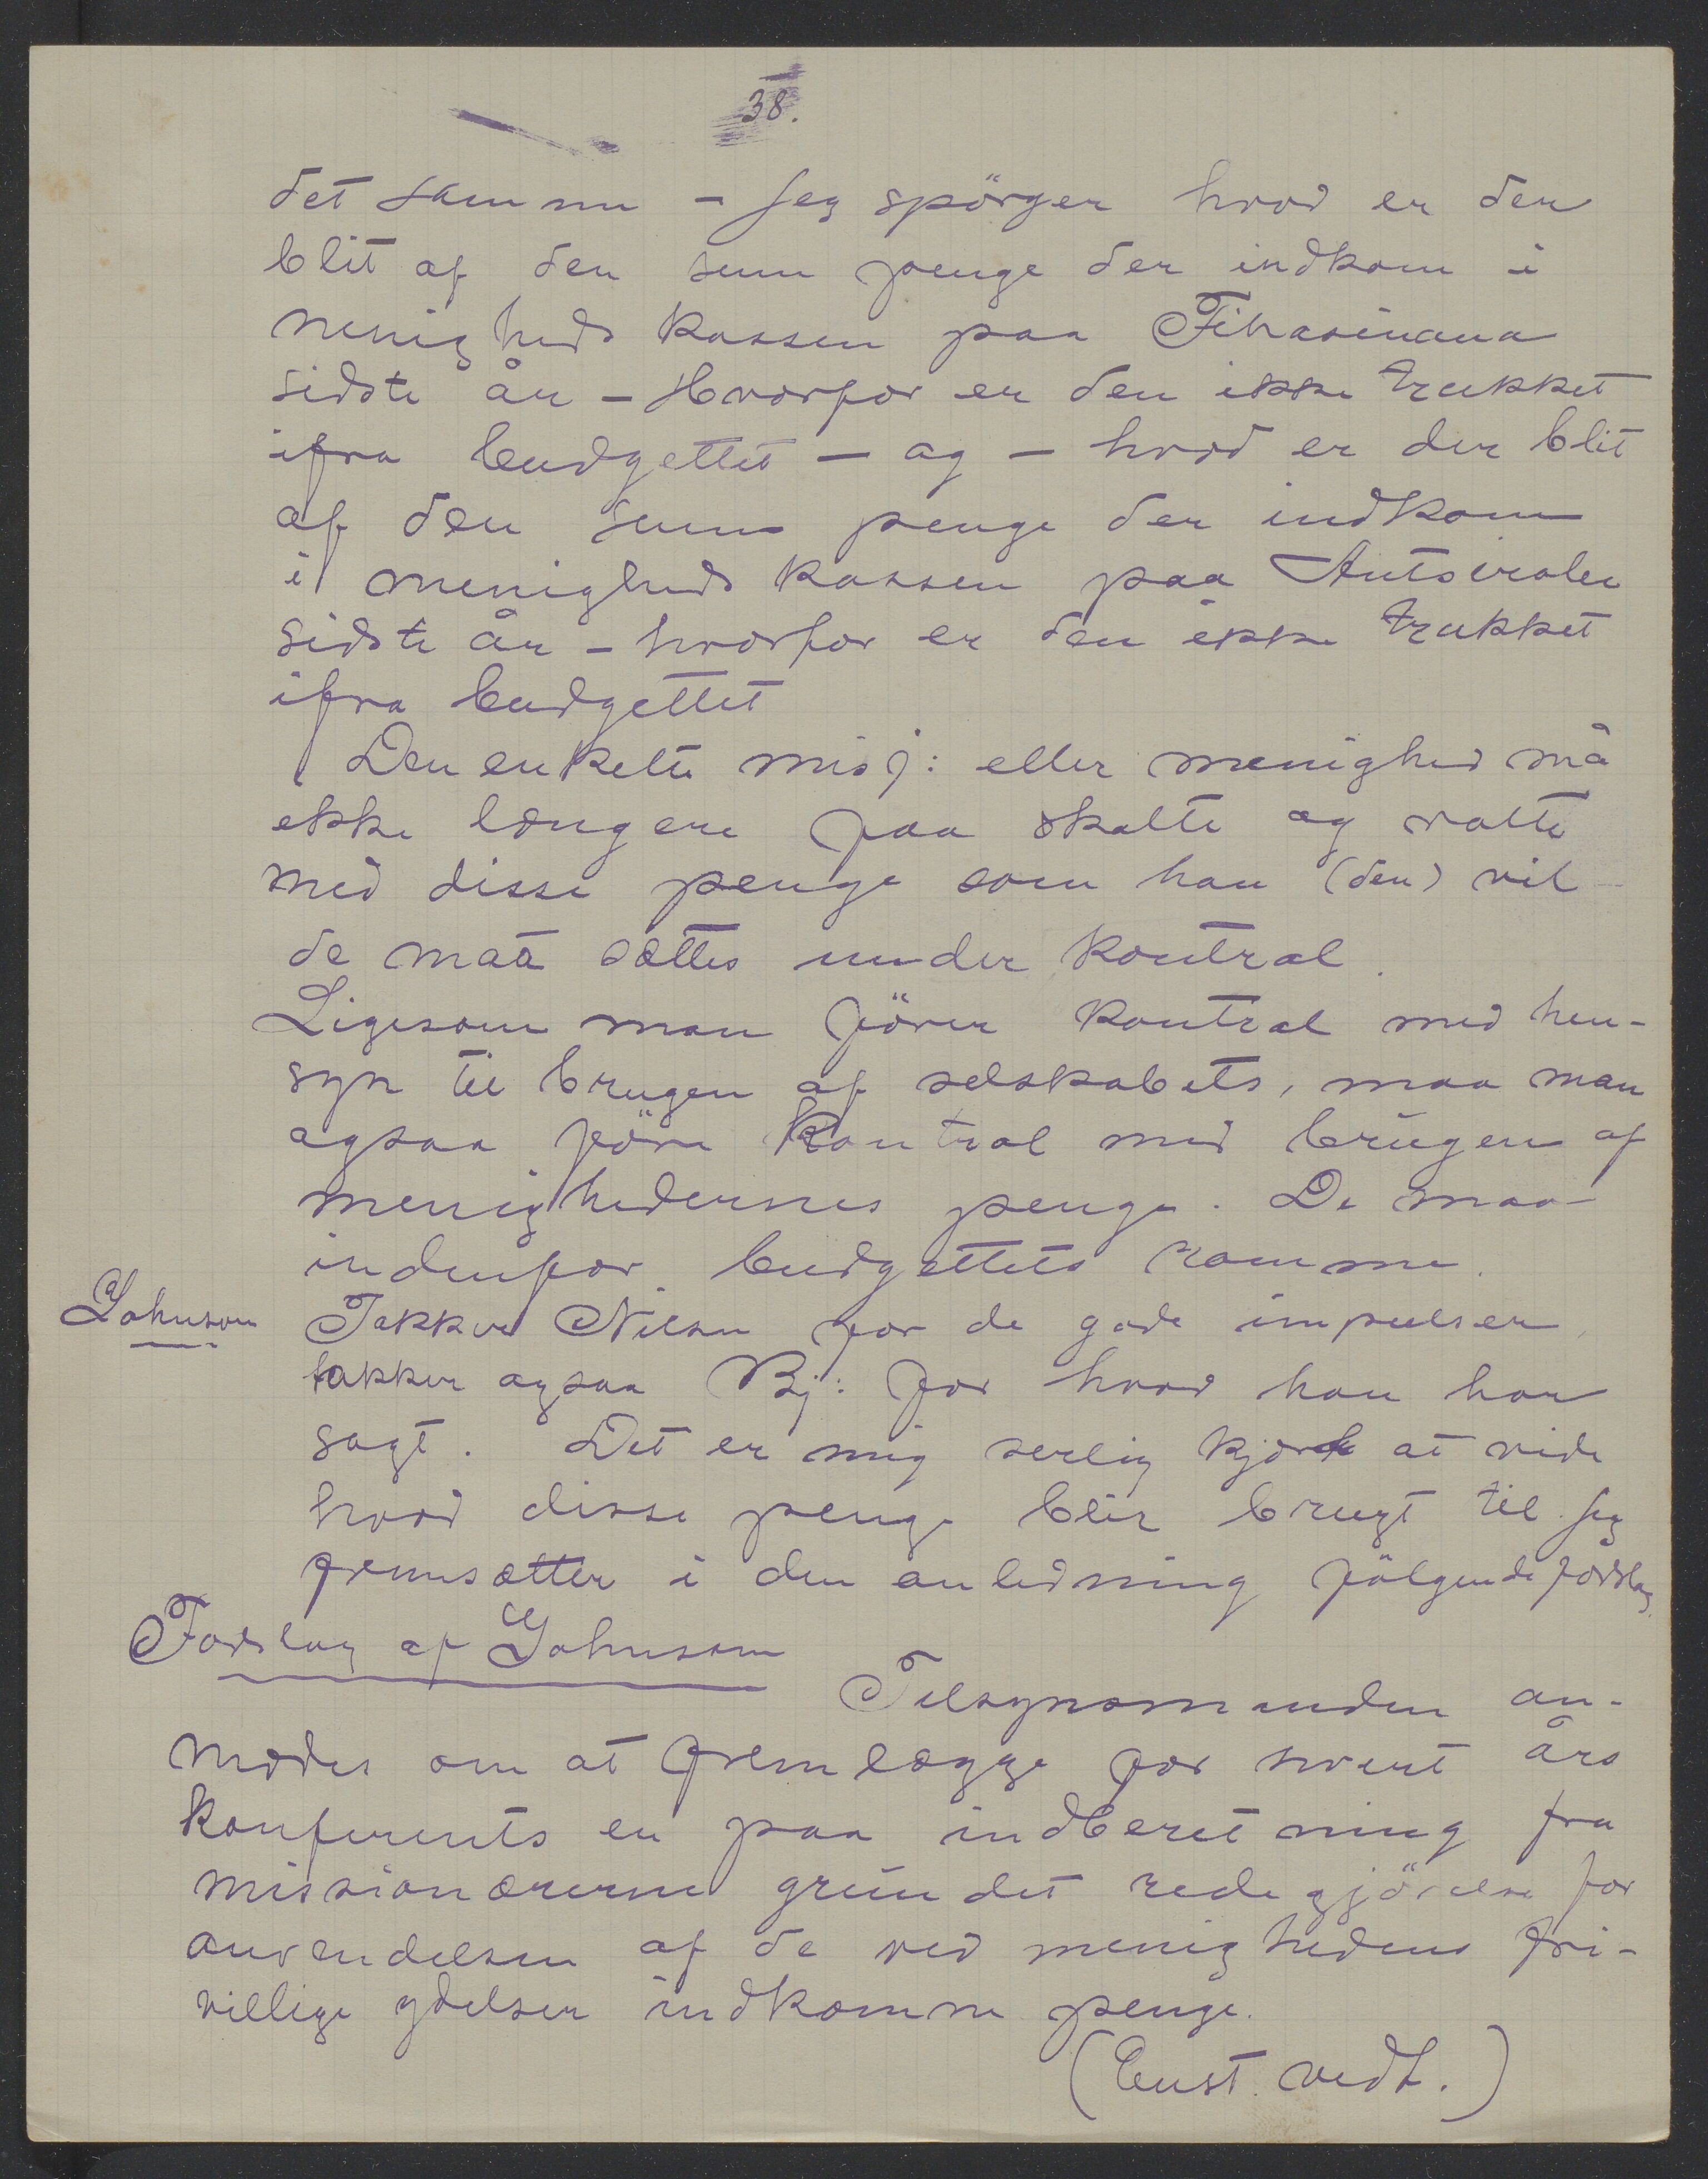 38.
det samme - Jeg spörger hvad er der
blit af den sum penge der indkom i
menigheds kassen paa Fihasinana
sidste år - Hvorfor er den ikke trukket
ifra budgettet - og - hvad er der blit
af den sum penge der indkom
i menigheds kassen paa Antsirabe
sidste år - hvorfor er den ikke trukket
ifra budgettet
Den enkelte misj: eller menighed må
ikke længere faa skalte og valte
med disse penge som han (den) vil -
de maa sættes under kontrol.
Ligesom man förer kontrol med hen-
syn til brugen af selskabets, maa man
ogsaa före kontrol med brugen af
menighedernes penge. De maa
indenfor budgettets ramme.
Johnson Takker Nilsen for de gode impulser,
takker ogsaa Bj: for hvad han har
sagt. Det er mig serlig kjært at vide
hvad disse penge blir brugt til. Jeg
fremsætter i den anledning fölgende forslag.
Forslag af Johnson
Tilsynsmanden an-
modes om at fremlægge for hvert års
konferents en paa indberetning fra
missionærerne grundet redegjörelse for
anvendelsen af de ved menighedens fri-
villige ydelser indkomne penge.
(Enst. vedt.)